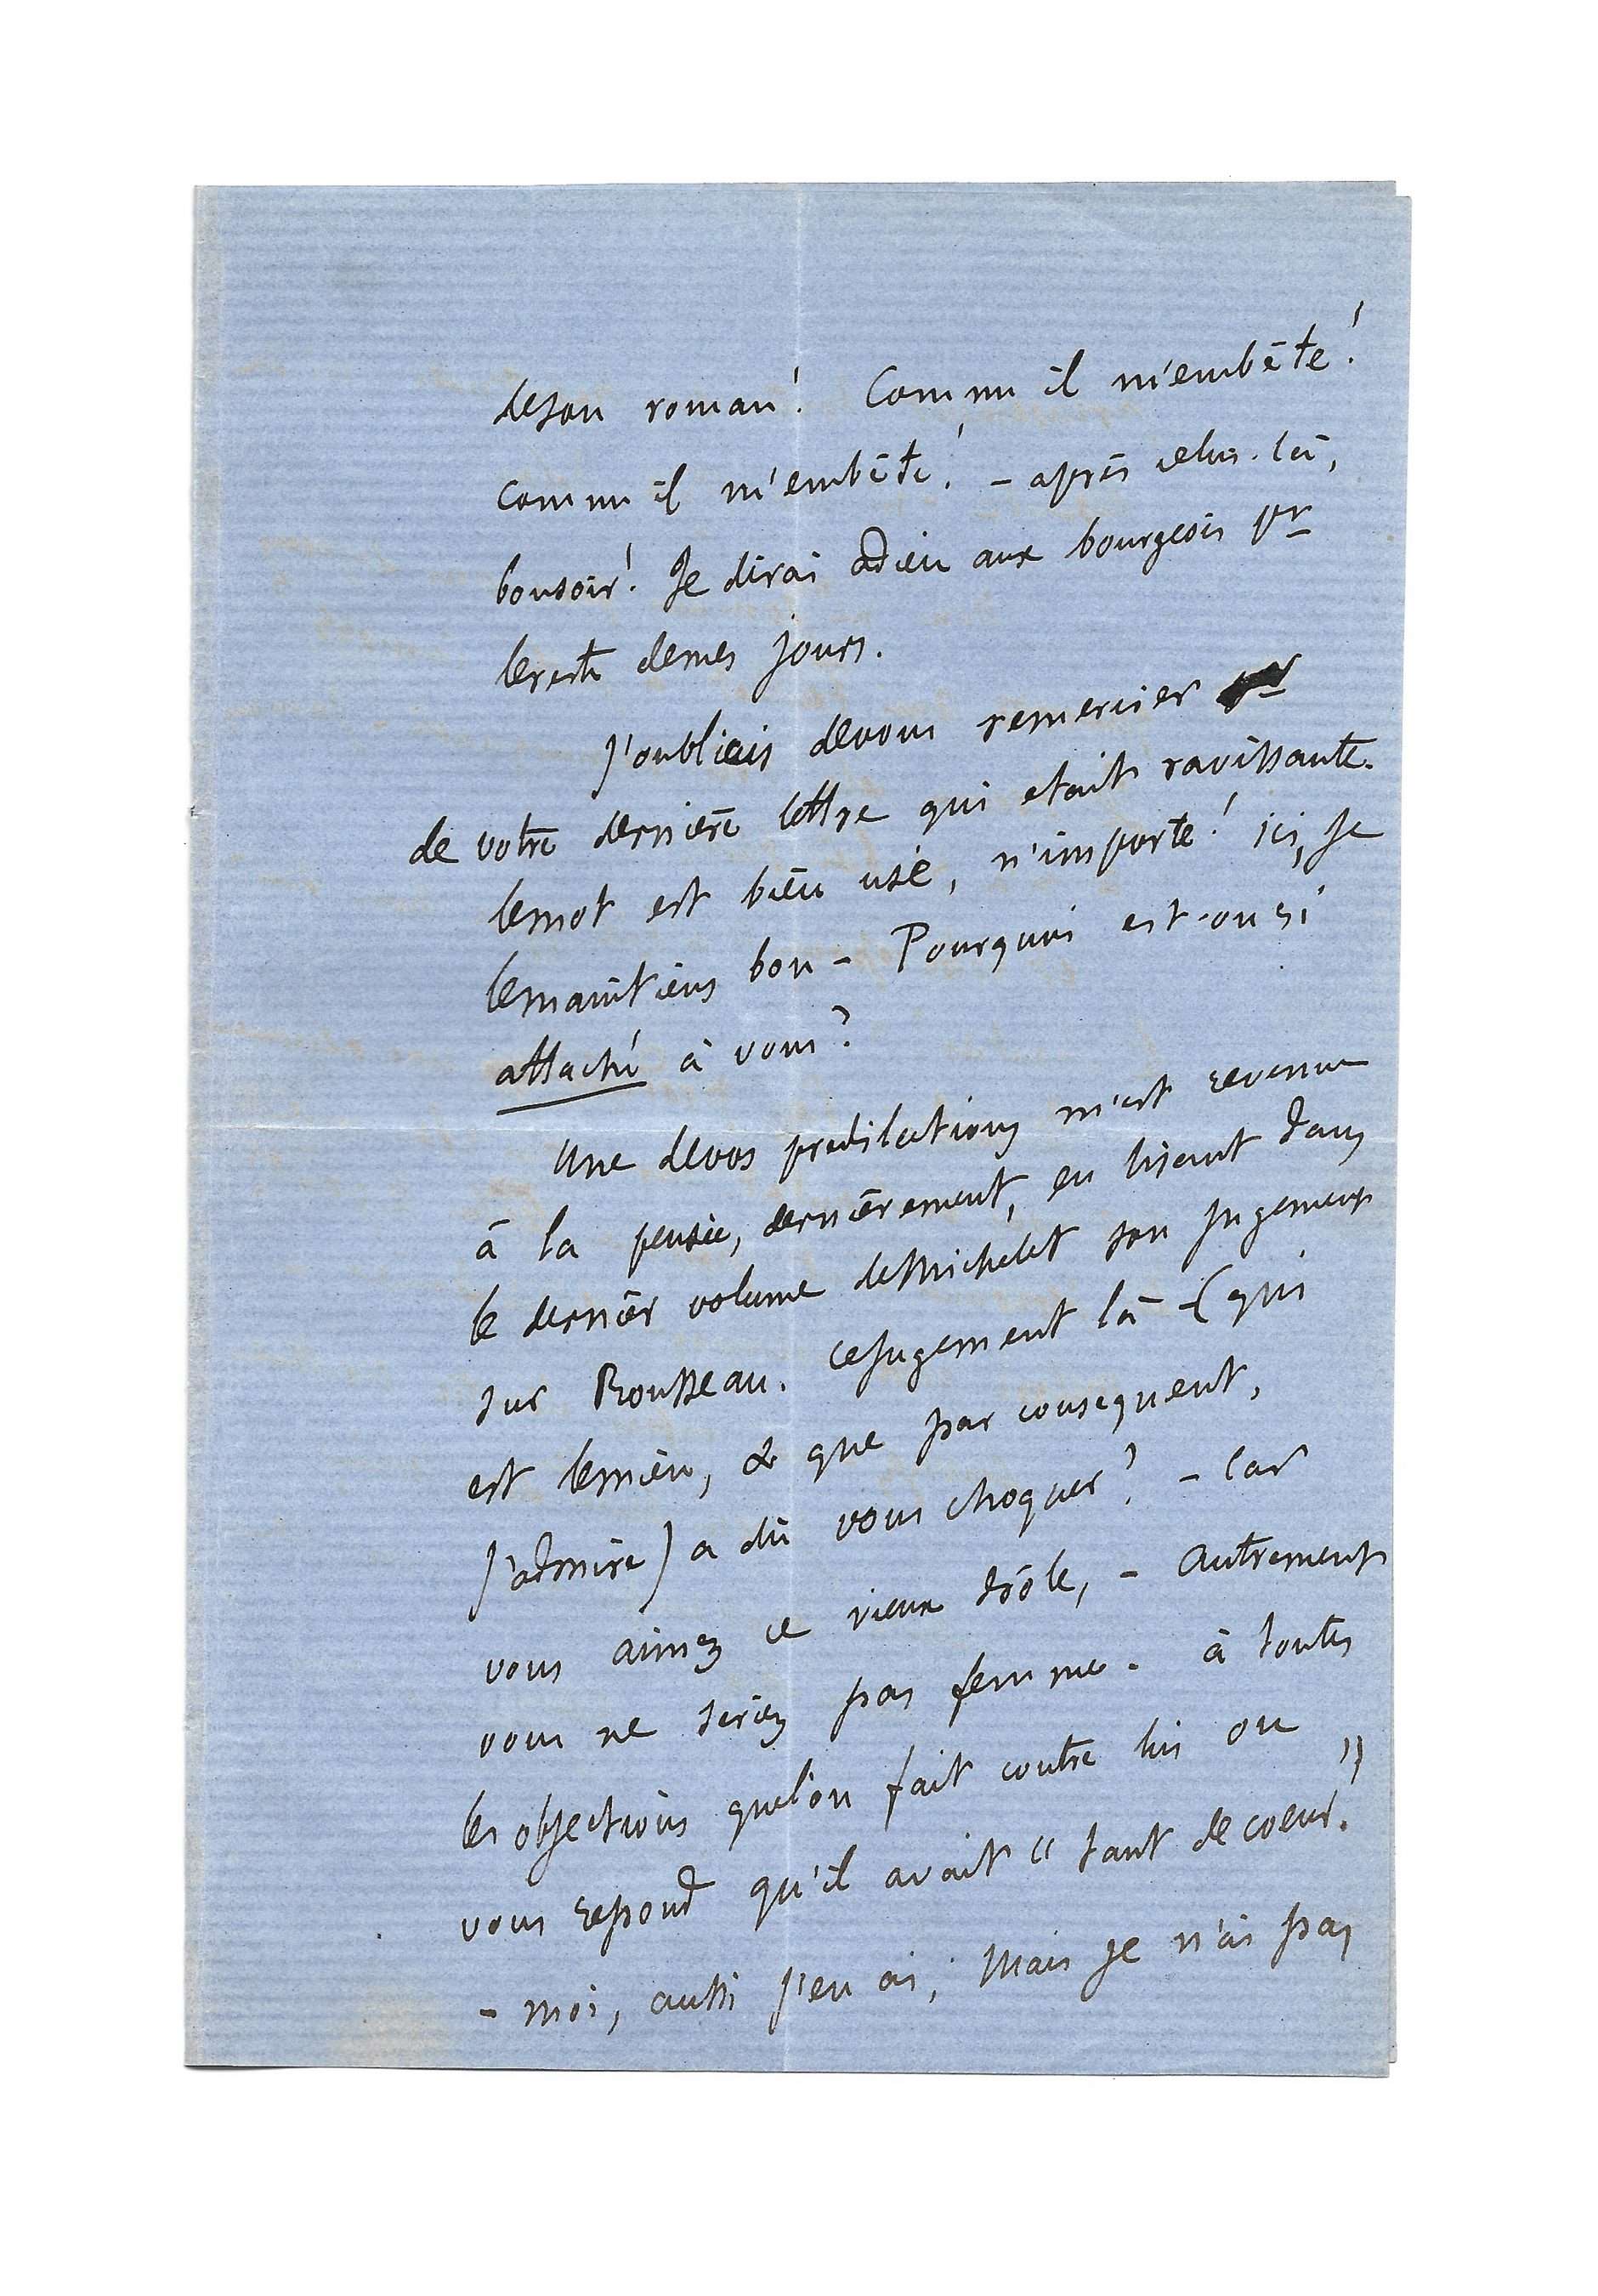 de son roman! Comme il m'embête!
comme il m'embête! – après celui-là,
bonsoir! Je dirai adieu aux bourgeois pr
le reste de mes jours.
J'oubliais de vous remercier
de votre dernière lettre qui etait ravissante.
le mot est bien usé, n'importe! ici, je
le maintiens bon – Pourquoi est-on si
attaché à vous?
Une de vos predilections m'est revenue
à la pensée, dernièrement, en lisant dans
le dernier volume de Michelet son jugement
sur Rousseau. ce jugement là – (qui
est le mien, & que par consequent,
j'admire) a dû vous choquer? – Car
vous aimez ce vieux drôle, – autrement
vous ne seriez pas femme. à toutes
les objections que l'on fait contre lui on
vous repond qu'il avait "tant de coeur."
– moi, aussi j'en ai; Mais je n'ai pas